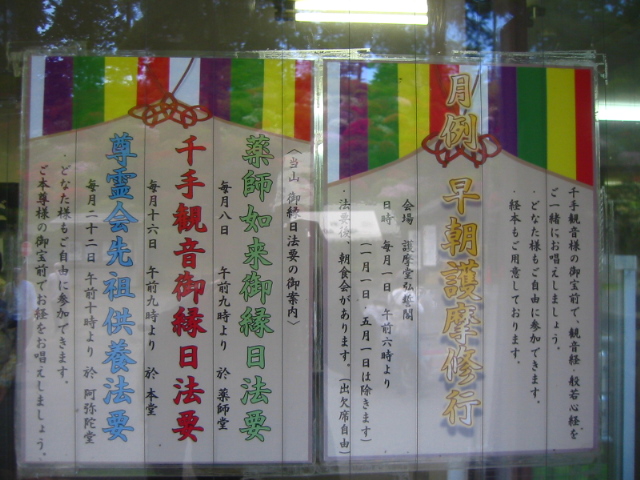 月例 早朝護摩修行
千手観音様の御宝前で、観音経・般若心経を
ご一緒にお唱えしましょう。
どなた様もご自由に参加できます。
・経本もご用意しております。
会場 護摩堂弘誓閣
日時 毎月一日 午前六時より
(一月一日・五月一日は除きます)
・法要後、朝食会があります。(出欠席自由)
〈当山 御縁日法要の御案内〉
薬師如来御縁日法要
毎月八日 午前九時より 於 薬師堂
千手観音御縁日法要
毎月十六日 午前九時より 於 本堂
尊霊会先祖供養法要
毎月二十二日 午前十時より 於 阿弥陀堂
・どなた様もご自由に参加できます。
ご本尊様の御宝前でお経をお唱えしましょう。